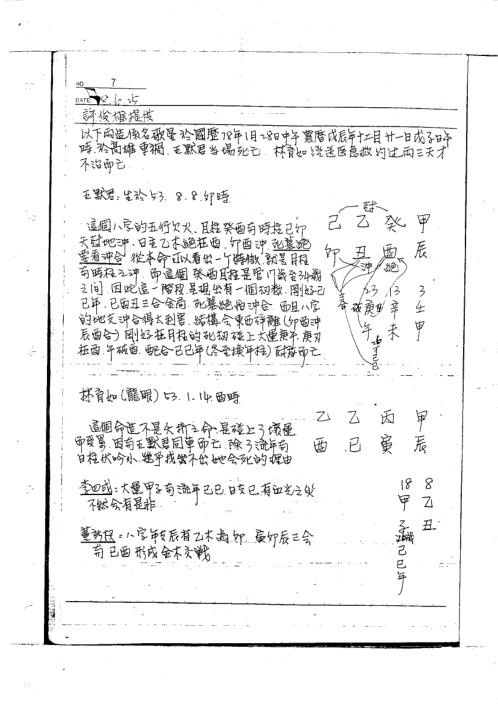 NO. 7
DATE 78.1.25
許俊雄提供
以下兩造係名歌星於國曆78年1月28日中午農曆戊辰年十二月廿一日戊子日午
時於高雄車禍，王默君当場死亡．林育如送医急救約过兩三天才
不治而亡．
王默君：生於53. 8. 8. 卯時
己 乙 癸 甲
卯 丑 酉 辰
沖 絕
23 13 3
庚 辛 壬
午 未 申
這個八字的五行欠火，且柱癸酉与時柱己卯
天尅地沖，日主乙木絕在酉，卯酉沖，死墓絕
要看沖合，從本命可以看出一个特徵，就是月柱
与時柱之沖，而這個癸酉月柱是管
之间，因此這一階段是現出有一個劫數，剛好己
己年，己酉丑三合金局，死墓絕怕沖合，而且八字
的地支沖合得太利害，結構会東西
辰酉合）剛好在月柱的死劫碰上大運庚午，庚刃
在酉，午破酉，配合己巳年（冬至換年柱）尅
林育如（龍眼）53. 1. 14. 酉時
乙 乙 丙 甲
酉 巳 寅 辰
18 8
甲 乙
子 丑
己
巳
年
這個命造不是夭折之命，是碰上了壞運
而受累，因与王默君同車而亡．除了流年与
日柱伏吟外，幾乎找不出她会死的理由
李四成：大運甲子与流年己巳，日支巳，有血光之災
不然会有是非
八字年支辰有乙木為卯，寅卯辰三会
与巳酉形成金木交戰